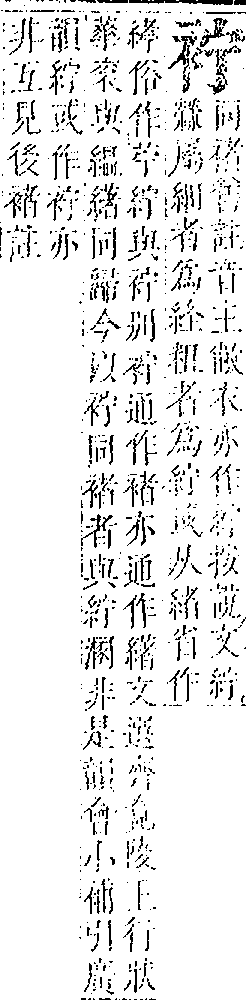 同褚舊註音主敝衣亦作紵按說文紵
檾屬細者為絟粗者為紵或从緒省作
俗作苧紵與別通作褚亦通作緒文選齊竟陵王行狀
華衮與縕緒同歸今以同褚者與紵溷非是韻會小補引廣
韻紵或作亦
非互見後褚註